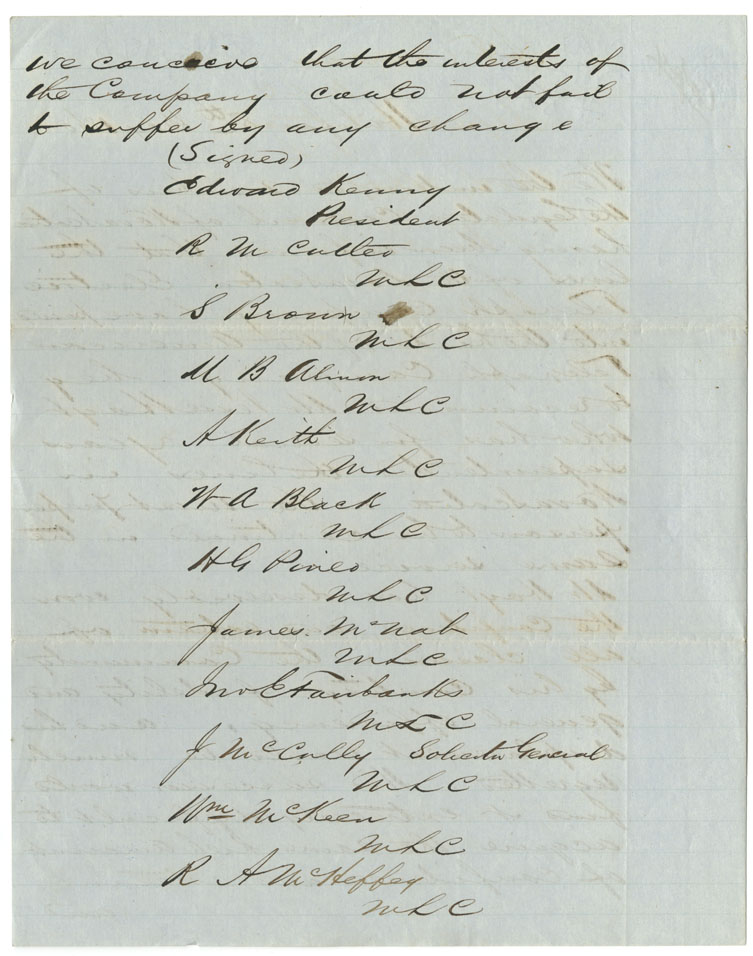 we conceive that the interests of
the Company could not fail
to suffer by any change
(Signed)
Edward Kenny
President
R M Cutler
MLC
S Brown
MLC
M B Almon
MLC
A Keith
MLC
W A Black
MLC
H G Pineo
MLC
James McNab
MLC
Jno E Fairbanks
MLC
J McCully Solicitor General
MLC
Wm McKeen
MLC
R A McHeffey
MLC